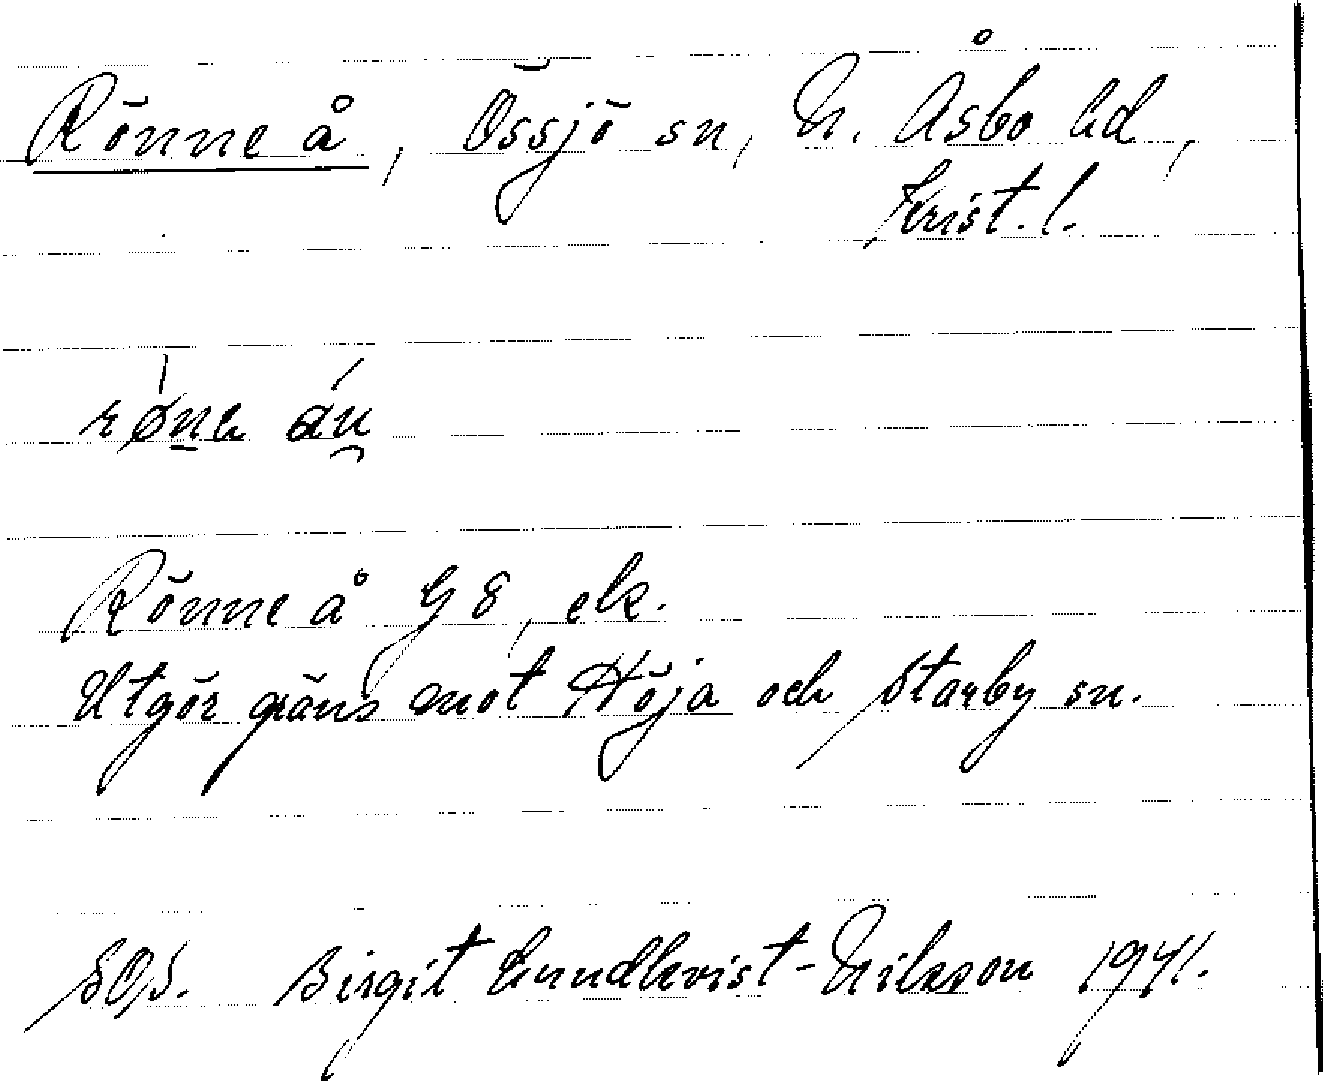 Rönne å, Össjö sn, N. Åsbo hd,
Krist. l.
Rönne å G 8, ek.
Utgör gräns mot Höja och Starby sn.
SOS. Birgit Lundkvist-Nilsson 1941.